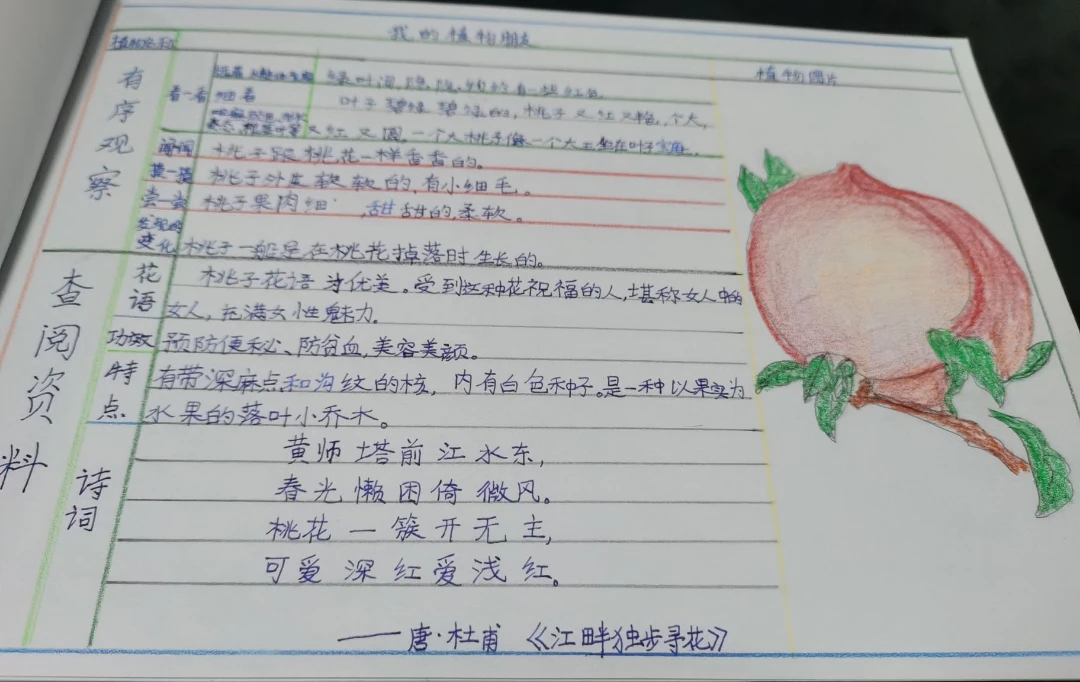 我的植物朋友
植物名称
植物图片
有序观察
看一看
绿叶
细看
叶子碧绿碧绿的，桃子又红又艳，个大，
又红又圆，一个大桃子像一个大王坐在叶子
闻一闻
桃子跟桃花一样香香的。
摸一摸
桃子外皮软软的，有小细毛。
尝一尝
桃子果肉细，甜甜的柔软。
发现的变化
桃子一般是在桃花掉落时生长的。
查阅资料
花语
桃子花语为优美。受到这种花祝福的人，堪称女人中的
女人，充满女性魅力。
功效
预防便秘、防贫血，美容美颜。
特点
有带深麻点和沟纹的核，内有白色种子。是一种以果实为
水果的落叶小乔木。
诗词
黄师塔前江水东，
春光懒困倚微风。
桃花一簇开无主，
可爱深红爱浅红。
——唐·杜甫《江畔独步寻花》